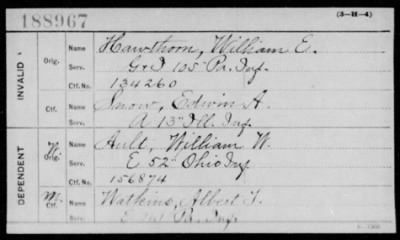 188967
(3-H-4)
INVALID
Orig.
Name Hawthorn, William E.
Serv. G & I 105 Pa. Inf.
Ctf. No. 134260
Ctf.
Name Snow, Edwin A.
Serv. A 13" Ill. Inf.
DEPENDENT
W. Orig.
Name Ault, William W.
Serv. E 52" Ohio Inf
Ctf. No. 156874
M. Ctf.
Name Watkins, Albert
Serv. Pa. Inf.